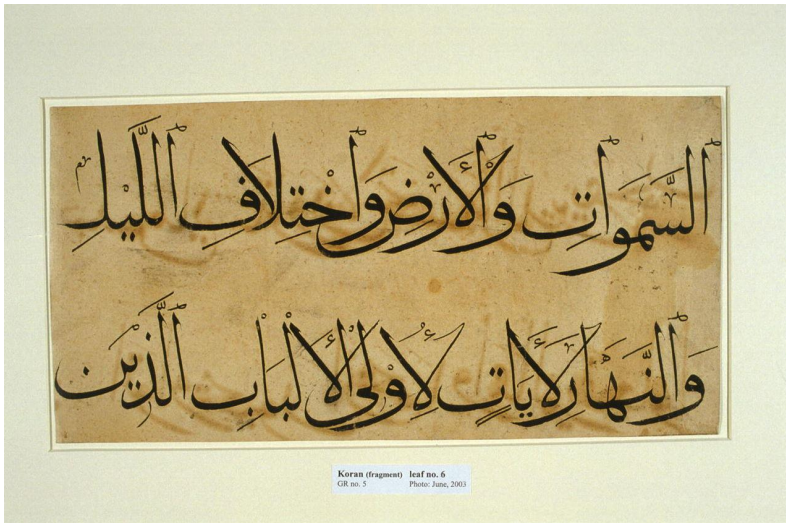 ٱلسَّمَوَاتِ وَٱلْأَرْضِ وَٱخْتِلَافِ ٱللَّيْلِ
وَٱلنَّهَارِ لَأَيَاتٍ لِأُوْلِى ٱلْأَلْبَابِ ٱلَّذِيْنَ
Koran (fragment) leaf no. 6
GR no. 5 Photo: June, 2003